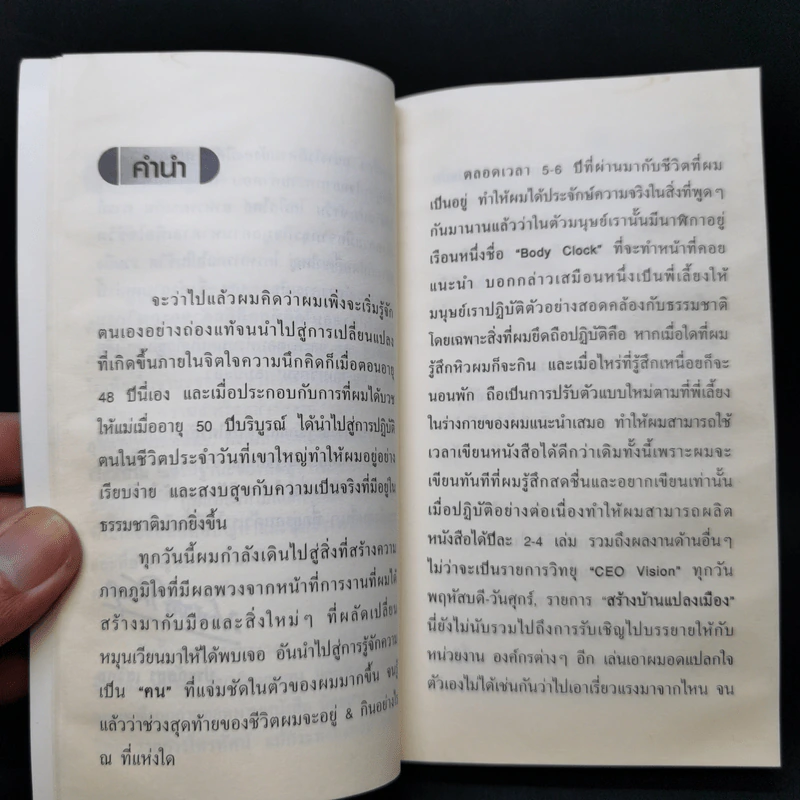 คำนำ
จะว่าไปแล้วผมคิดว่าผมเพิ่งจะเริ่มรู้จัก
ตนเองอย่างถ่องแท้จนนำไปสู่การเปลี่ยนแปลง
ที่เกิดขึ้นภายในจิตใจความนึกคิดก็เมื่อตอนอายุ
48 ปีนี่เอง และเมื่อประกอบกับการที่ผมได้บวช
ให้แม่เมื่ออายุ 50 ปีบริบูรณ์ ได้นำไปสู่การปฏิบัติ
ตนในชีวิตประจำวันที่เขาใหญ่ทำให้ผมอยู่อย่าง
เรียบง่าย และสงบสุขกับความเป็นจริงที่มีอยู่ใน
ธรรมชาติมากยิ่งขึ้น
ทุกวันนี้ผมกำลังเดินไปสู่สิ่งที่สร้างความ
ภาคภูมิใจที่มีผลพวงจากหน้าที่การงานที่ผมได้
สร้างมากับมือและสิ่งใหม่ๆ ที่ผลัดเปลี่ยน
หมุนเวียนมาให้ได้พบเจอ อันนำไปสู่การรู้จักความ
เป็น "ฅน" ที่แจ่มชัดในตัวของผมมากขึ้น จนรู้
แล้วว่าช่วงสุดท้ายของชีวิตผมจะอยู่ & กินอย่างไร
ณ ที่แห่งใด
ตลอดเวลา 5-6 ปีที่ผ่านมากับชีวิตที่ผม
เป็นอยู่ ทำให้ผมได้ประจักษ์ความจริงในสิ่งที่พูดๆ
กันมานานแล้วว่าในตัวมนุษย์เรานั้นมีนาฬิกาอยู่
เรือนหนึ่งชื่อ "Body Clock" ที่จะทำหน้าที่คอย
แนะนำ บอกกล่าวเสมือนหนึ่งเป็นพี่เลี้ยงให้
มนุษย์เราปฏิบัติตัวอย่างสอดคล้องกับธรรมชาติ
โดยเฉพาะสิ่งที่ผมยึดถือปฏิบัติคือ หากเมื่อใดที่ผม
รู้สึกหิวผมก็จะกิน และเมื่อไหร่ที่รู้สึกเหนื่อยก็จะ
นอนพัก ถือเป็นการปรับตัวแบบใหม่ตามที่พี่เลี้ยง
ในร่างกายของผมแนะนำเสมอ ทำให้ผมสามารถใช้
เวลาเขียนหนังสือได้ดีกว่าเดิมทั้งนี้เพราะผมจะ
เขียนทันทีที่ผมรู้สึกสดชื่นและอยากเขียนเท่านั้น
เมื่อปฏิบัติอย่างต่อเนื่องทำให้ผมสามารถผลิต
หนังสือได้ปีละ 2-4 เล่ม รวมถึงผลงานด้านอื่นๆ
ไม่ว่าจะเป็นรายการวิทยุ "CEO Vision" ทุกวัน
พฤหัสบดี-วันศุกร์, รายการ "สร้างบ้านแปลงเมือง"
นี่ยังไม่นับรวมไปถึงการรับเชิญไปบรรยายให้กับ
หน่วยงาน องค์กรต่างๆ อีก เล่นเอาผมอดแปลกใจ
ตัวเองไม่ได้เช่นกันว่าไปเอาเรี่ยวแรงมาจากไหน จน